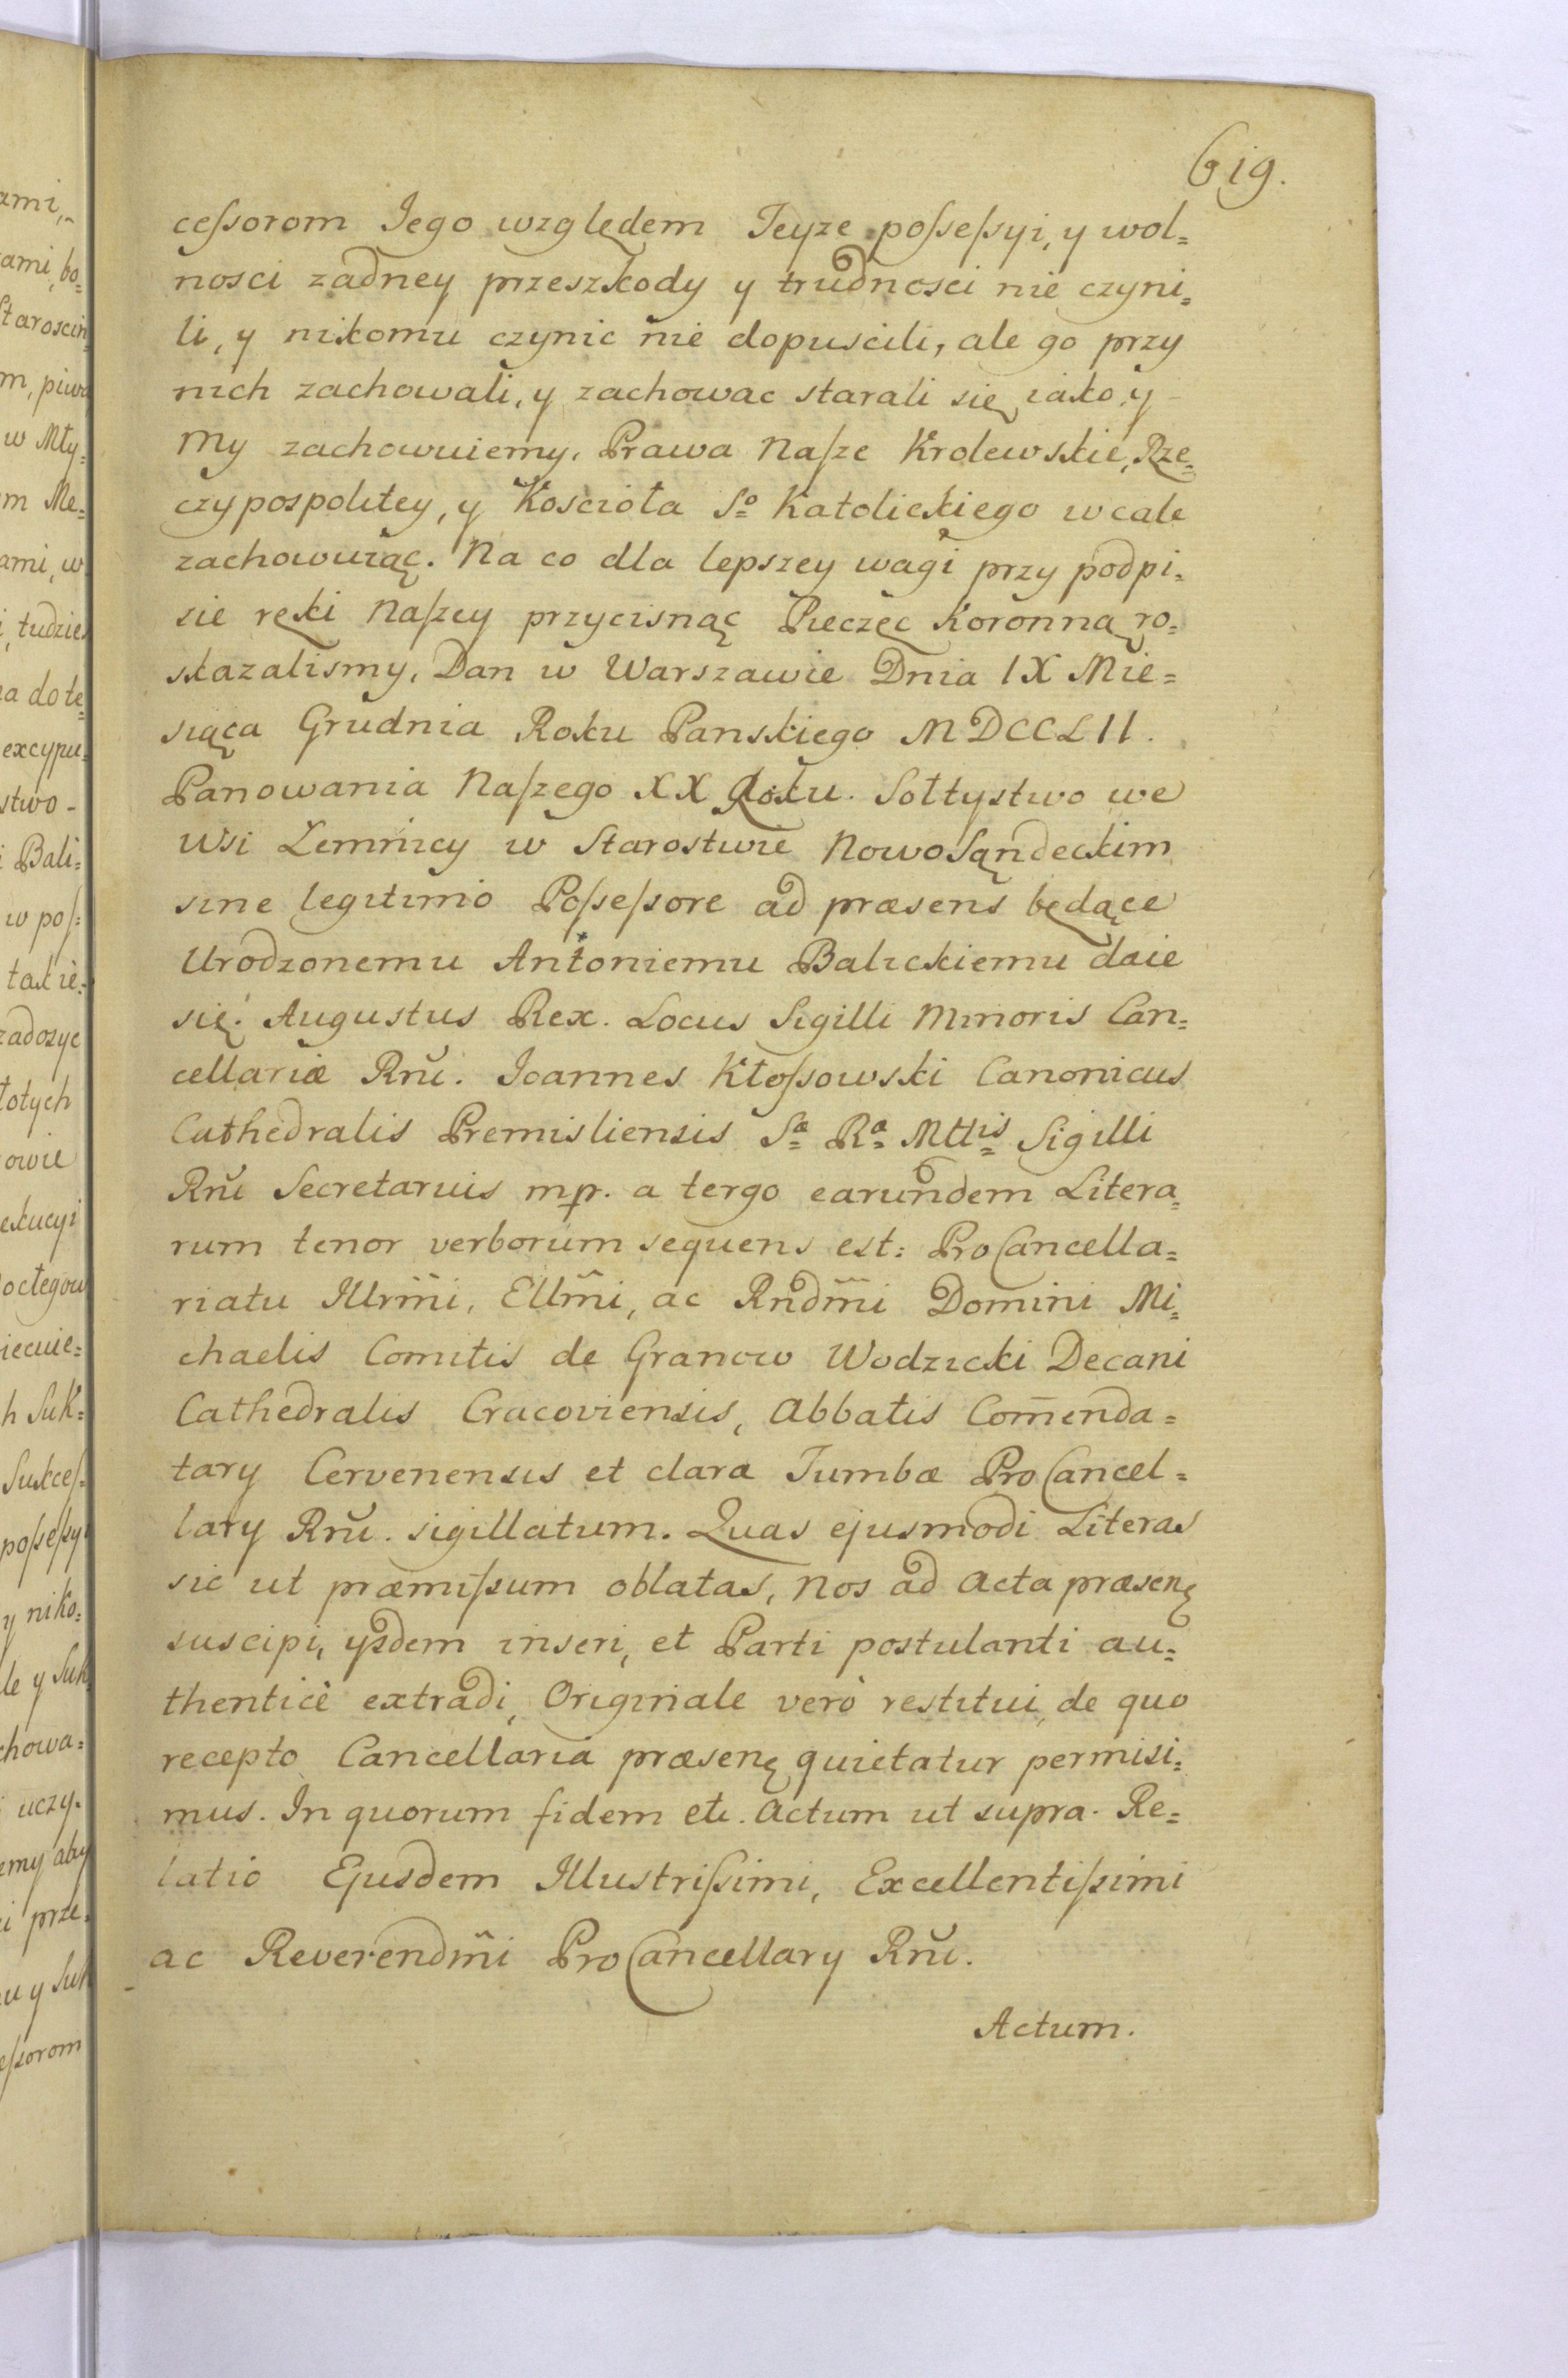 619.
ceſsorom Jego względem Teyze poſseſsyi, y wol=
nosci zadney przeszkody y trudnosci nie czyni=
li, y nikomu czynic nie dopuscili, ale go przy
nich zachowali, y zachowac starali się iako y
My zachowuiemy, Prawa Naſze Krolewskie, Rze=
czypospolitey, y Koscioła So Katolickiego wcale
zachowuiąc. Na co dla lepszey wagi przy podpi=
sie ręki Naſzey przycisnąc Pieczęc Koronną ro=
skazalismy, Dan w Warszawie Dnia IX Mie=
siąca Grudnia Roku Panskiego MDCCLII.
Panowania Naſzego XX Roku. Sołtystwo we
Wsi Zemnicy w Starostwie NowoSąndeckim
sine legitimo Poſseſsore ad præsens będące
Urodzonemu Antoniemu Balickiemu daie
się. Augustus Rex. Locus Sigilli Minoris Can=
cellariæ Rnĩ. Joannes Kłoſsowski Canonicus
Cathedralis Premisliensis Sa Ra Mttis Sigilli
Rnĩ Secretarius mp. a tergo earundem Litera=
rum tenor verborum sequens est: ProCancella=
riatu Illrm̃i, Ellm̃i, ac Rndm̃i Domini Mi=
chaelis Comitis de Granow Wodzicki Decani
Cathedralis Cracoviensis, Abbatis Com̃enda=
tary Cervenensis et clara Tumbæ ProCancel=
lary Rnĩ. sigillatum. Quas ejusmodi Literas
sic ut præmiſsum oblatas, Nos ad Acta præsenę
suscipi, ysdem inseri, et Parti postulanti au=
thenticè extradi, Originale verò restitui, de quo
recepto Cancellaria præsenę quietatur permisi=
mus. In quorum fidem etc. Actum ut supra. Re=
latio Ejusdem Illustriſsimi, Excellentiſsimi
ac Reverendm̃i ProCancellary Rnĩ.
Actum.